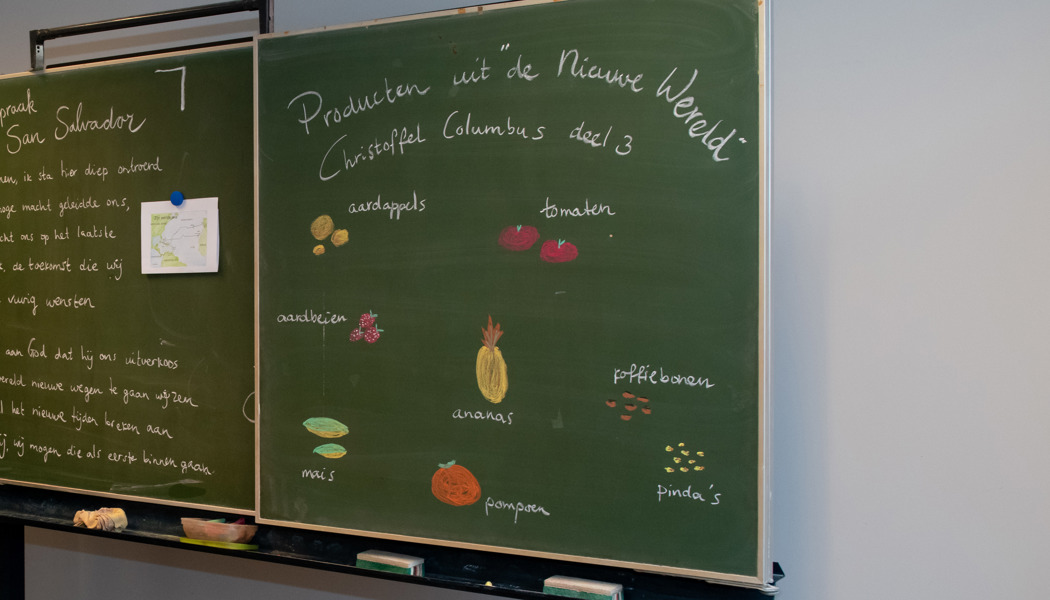 7
San Salvador
ik sta hier diep ontroerd
macht geleidde ons,
ons op het laatste
de toekomst die wij
vurig wensten
aan God dat hij ons uitverkoos
nieuwe wegen te gaan wijzen
het nieuwe tijden breken aan
wij mogen die als eerste binnen gaan.
Producten uit "de Nieuwe Wereld"
Christoffel Columbus deel 3
aardappels
tomaten
aardbeien
ananas
koffiebonen
mais
pompoen
pinda's